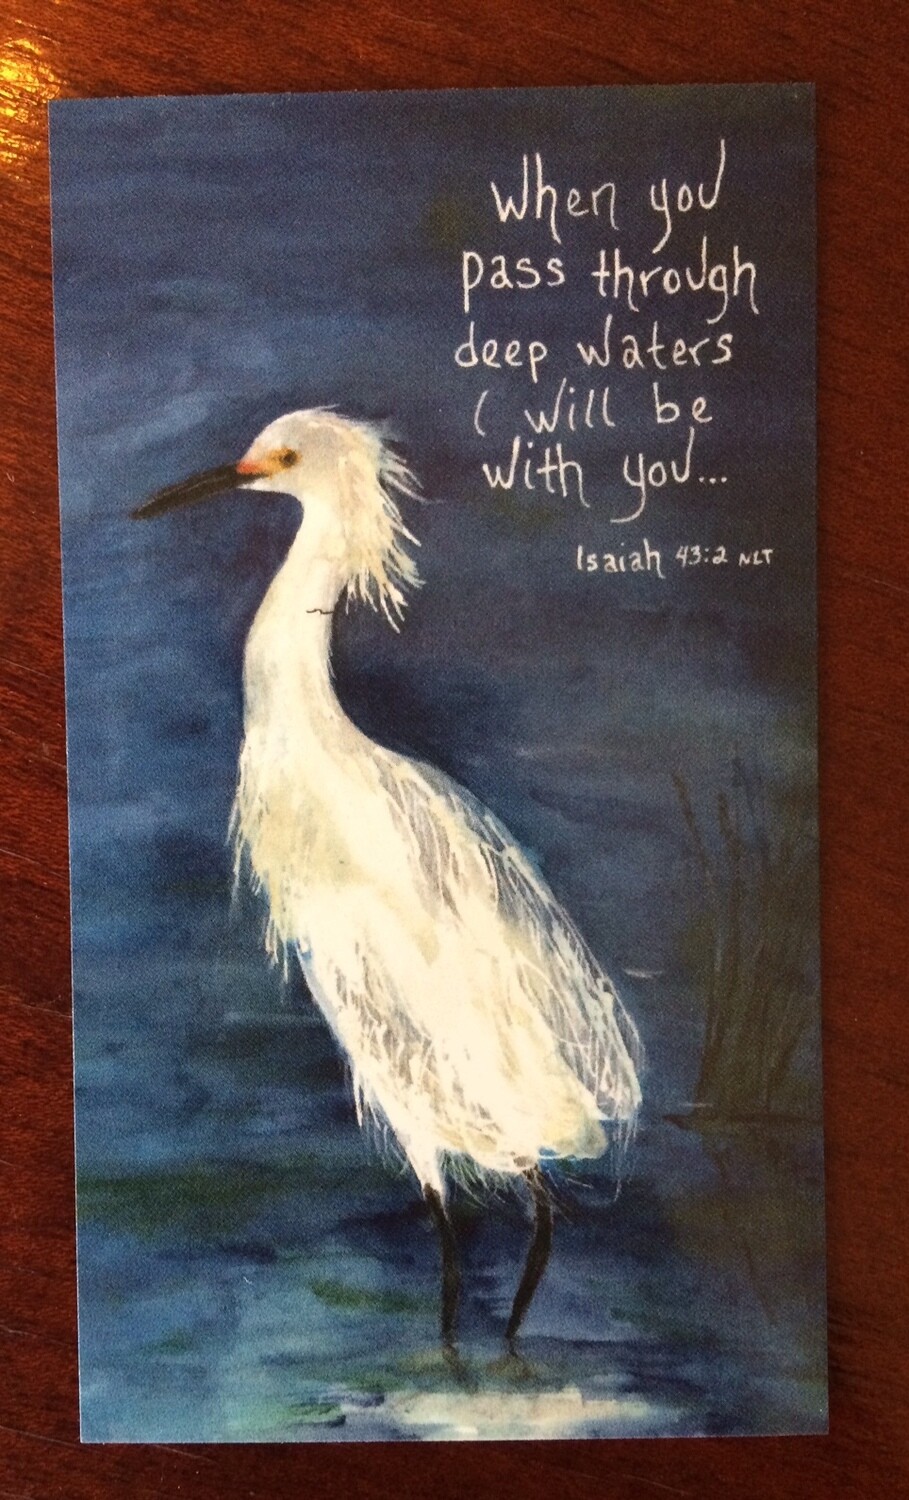 When you
pass through
deep waters
I will be
with you...
Isaiah 43:2 NLT